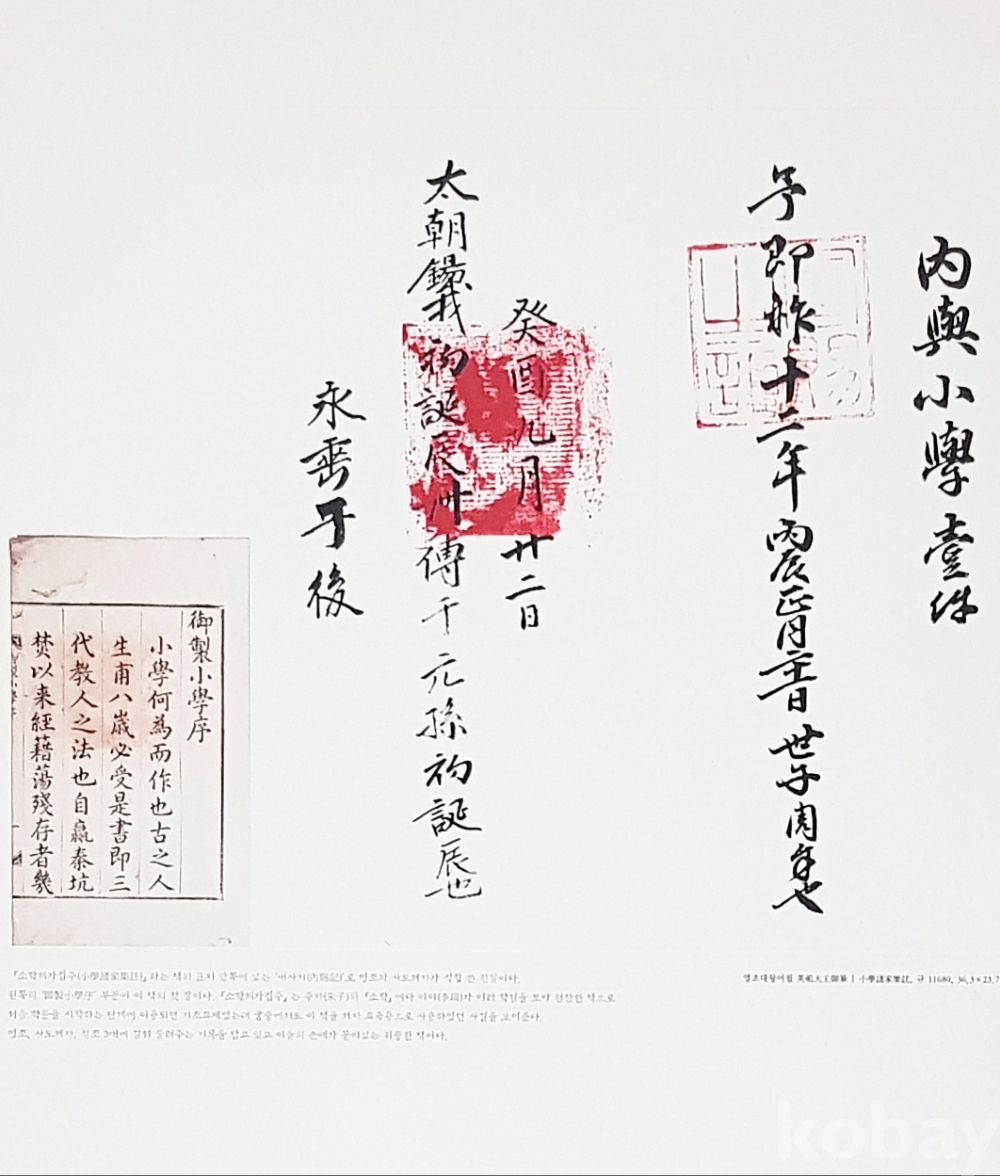 內與小學壹件
予即祚十二年丙辰正月二十一日世子周年也
癸酉九月廿二日
太朝鑱我初誕辰卌傳于元孫初誕辰也
永垂予後
御製小學序
小學何為而作也古之人
生甫八歲必受是書即三
代教人之法也自嬴秦坑
焚以来經籍蕩殘存者幾
『소학제가집주(小學諸家集註)』라는 책의 표지 안쪽에 있는 '내사기(內賜記)'로 영조와 사도세자가 직접 쓴 친필이다.
왼쪽의 '御製小學序' 부분이 이 책의 첫 장이다. 『소학제가집주』는 주자(朱子)의 『소학』에다 이이(李珥)가 여러 학설을 모아 편찬한 책으로
처음 학문을 시작하는 단계에 이용되던 기초교재였는데 궁중에서도 이 책을 세자 교육용으로 사용하였던 사실을 보여준다.
영조, 사도세자, 정조 3대에 걸쳐 물려주는 기록을 담고 있고 이들의 손때가 묻어있는 귀중한 책이다.
영조대왕어필 英祖大王御筆 | 小學諸家集註, 규 11680, 36.3×23.7
kobay